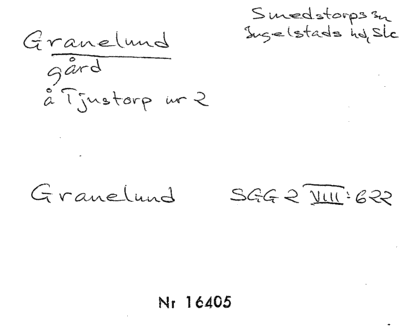 Granelund
gård
å Tjustorp nr 2
Smedstorps sn
Ingelstads hd, Skc
Granelund SGG 2 VIII: 622
Nr 16405